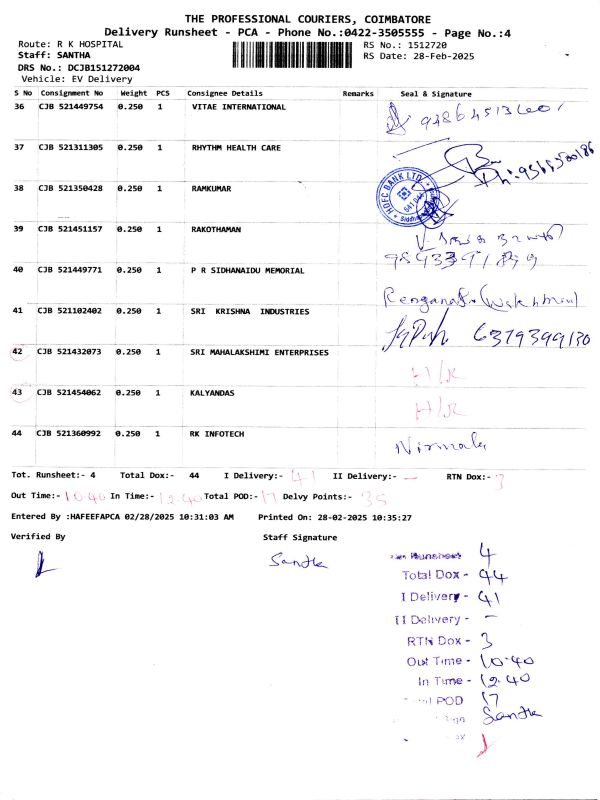 THE PROFESSIONAL COURIERS, COIMBATORE
Delivery Runsheet - PCA - Phone No.:0422-3505555 - Page No.:4
Route: R K HOSPITAL RS No.: 1512720
Staff: SANTHA RS Date: 28-Feb-2025
DRS No.: DCJB151272004
Vehicle: EV Delivery
S No Consignment No Weight PCS Consignee Details Remarks Seal & Signature
36 CJB 521449754 0.250 1 VITAE INTERNATIONAL
37 CJB 521311305 0.250 1 RHYTHM HEALTH CARE
38 CJB 521350428 0.250 1 RAMKUMAR HDFC BANK LTD.
39 CJB 521451157 0.250 1 RAKOTHAMAN
40 CJB 521449771 0.250 1 P R SIDHANAIDU MEMORIAL
41 CJB 521102402 0.250 1 SRI KRISHNA INDUSTRIES 6379399130
42 CJB 521432073 0.250 1 SRI MAHALAKSHIMI ENTERPRISES H/R
43 CJB 521454062 0.250 1 KALYANDAS H/R
44 CJB 521360992 0.250 1 RK INFOTECH Nirmala
Tot. Runsheet:- 4 Total Dox:- 44 I Delivery:- 41 II Delivery:- — RTN Dox:- 3
Out Time:- 10.40 In Time:- 12.40 Total POD:- 17 Delvy Points:- 35
Entered By :HAFEEFAPCA 02/28/2025 10:31:03 AM Printed On: 28-02-2025 10:35:27
Verified By Staff Signature
Santha
Runsheet 4
Total Dox - 44
I Delivery - 41
II Delivery - -
RTN Dox - 3
Out Time - 10.40
In Time - 12.40
POD 17
Santha